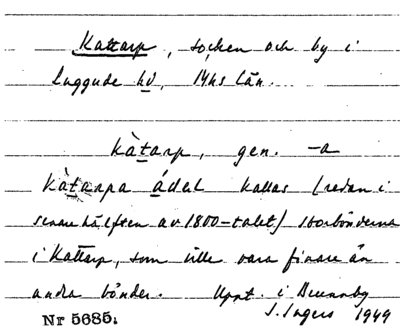 Kattarp, socken och by i
Luggude hd, Mhs län.
kàtarp, gen. -a
kàtarpa ádel kallas (redan i
senare hälften av 1800-talet) storbönderna
i Kattarp, som ville vara finare än
andra bönder. Uppt. i Brunnby
Nr 5685. J. Ingers 1949